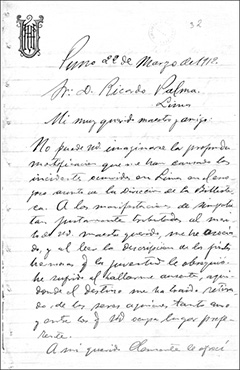 32
Puno 22 de Marzo de 1912.
Sr. D. Ricardo Palma.
Lima
Mi muy querido maestro y amigo:
No puede Ud imaginarse la profunda
mortificacion que me han causado los
incidentes ocurridos en Lima en el eno-
joso asunto de la Direccion de la Bibliote-
ca. A las manifestaciones de simpatia
tan justamente tributadas al méri-
to de Ud. maestro querido, me he asocia-
do, y al leer la descripcion de la fiesta
hermosa q. la juventud le obsequió
he sufrido al hallarme ausente, aqui
donde el destino me ha traido, retira-
do de los seres a quienes tanto amo
y entre los q. Ud ocupa lugar prefe-
rente.
A mi querido Clemente le